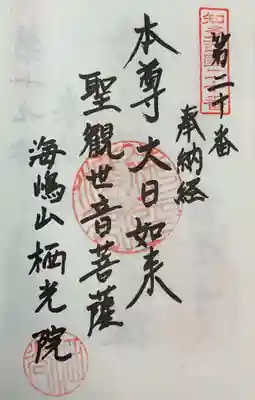 第二十番
奉納経
本尊 大日如来
聖観世音菩薩
海嶋山栖光院